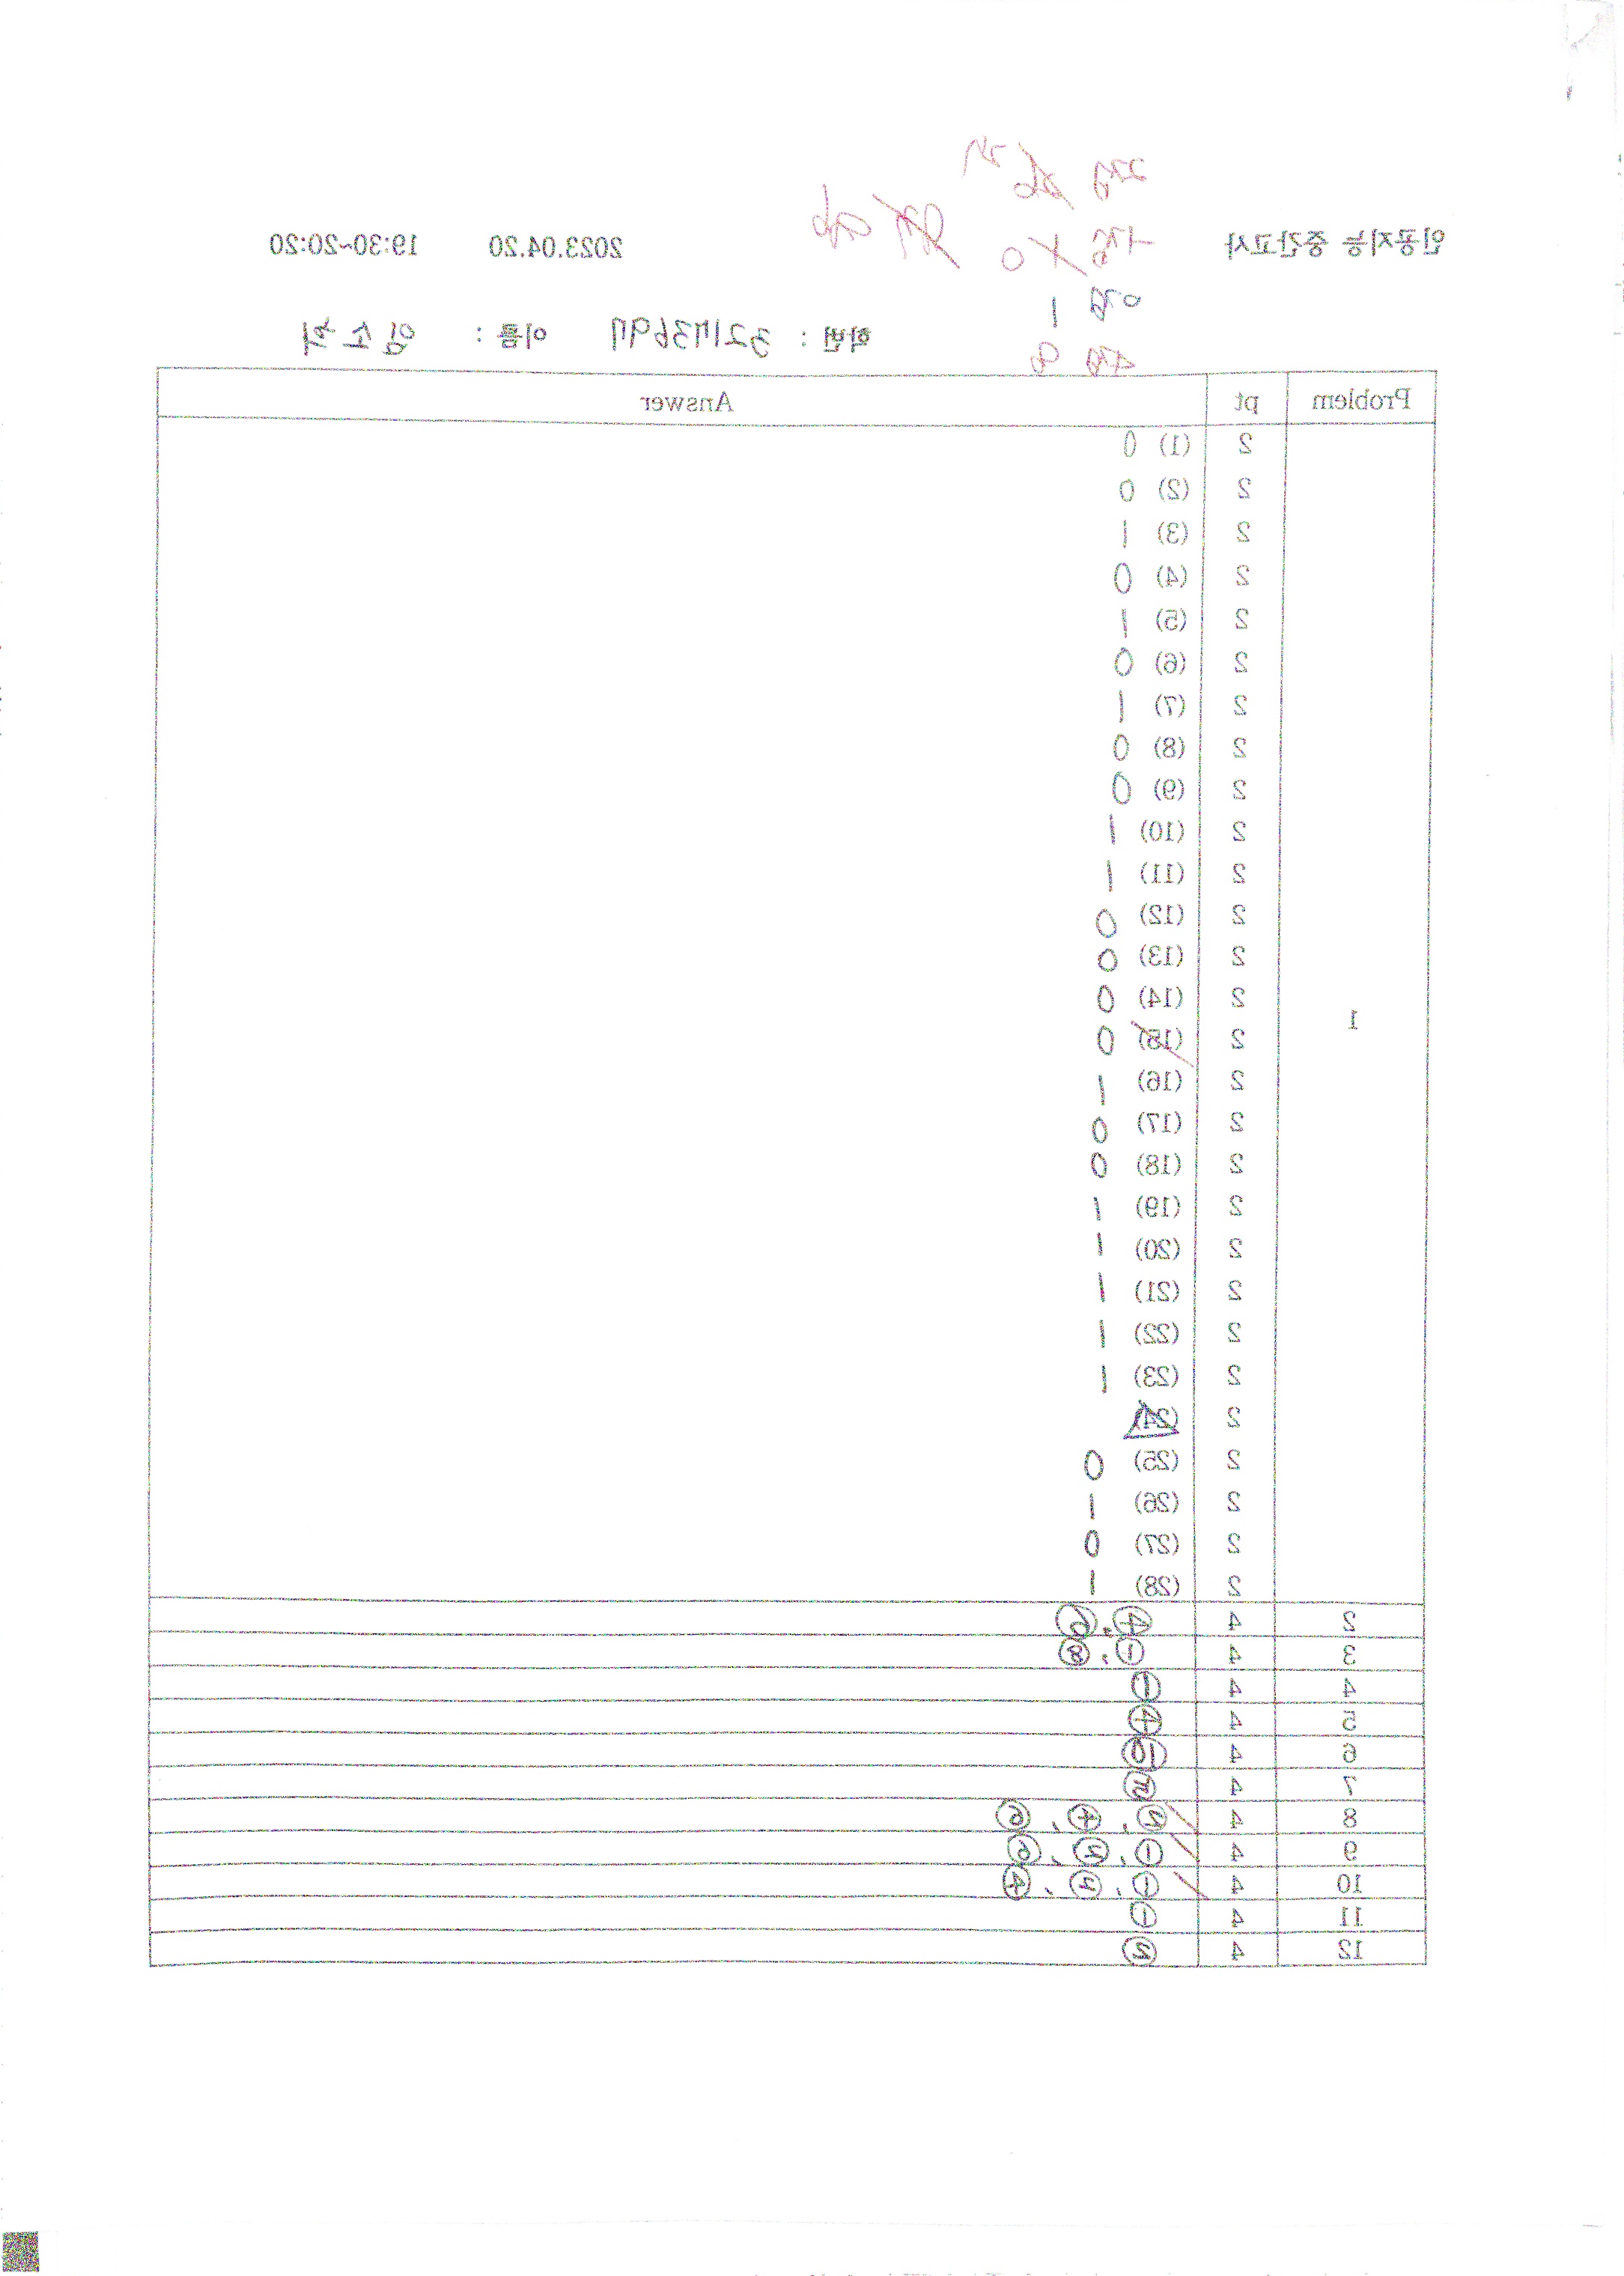 인공지능 중간고사 2023.04.20 19:30~20:20
학번 : 32173697 이름 :
Problem pt Answer
2 (1) 0
2 (2) 0
2 (3) 1
2 (4) 0
2 (5) 1
2 (6) 0
2 (7) 1
2 (8) 0
2 (9) 0
2 (10) 1
2 (11) 1
2 (12) 0
2 (13) 0
2 (14) 0
1 2 (15) 0
2 (16) 1
2 (17) 0
2 (18) 0
2 (19) 1
2 (20) 1
2 (21) 1
2 (22) 1
2 (23) 1
2 (24)
2 (25) 0
2 (26) 1
2 (27) 0
2 (28) 1
2 4
3 4 ①, ⑧
4 4
5 4
6 4 ⑩
7 4
8 4
9 4 ①
10 4 ①, ④
11 4 ①
12 4 ②